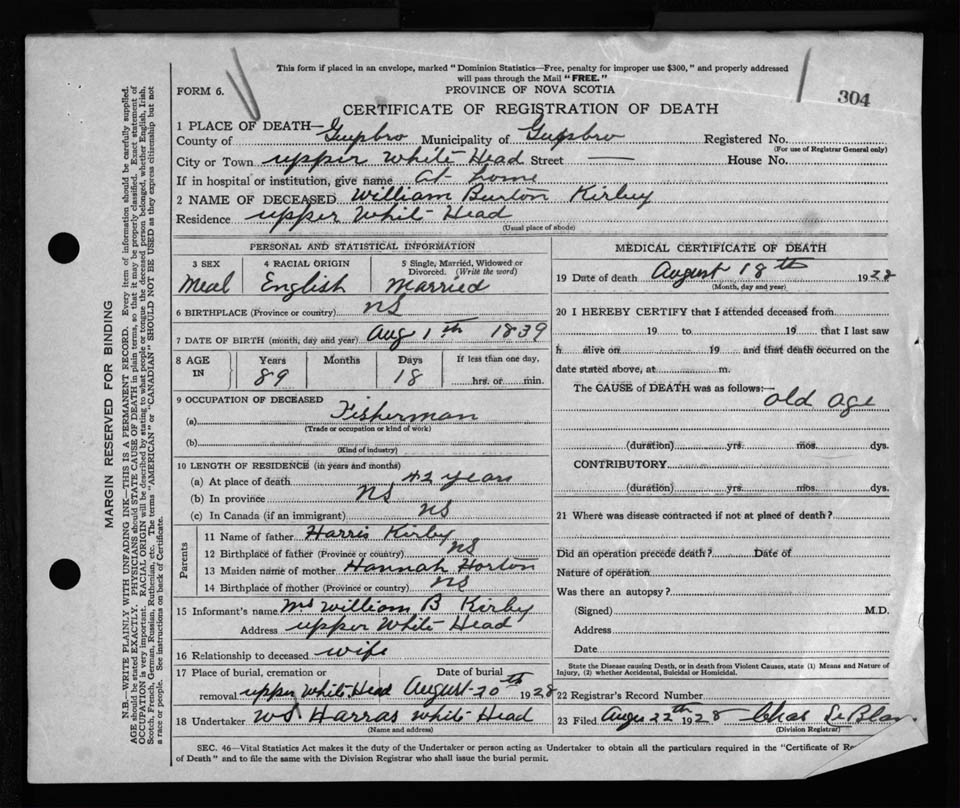 This form if placed in an envelope, marked "Dominion Statistics—Free, penalty for improper use $300," and properly addressed
will pass through the Mail "FREE."
FORM 6.
PROVINCE OF NOVA SCOTIA
304
CERTIFICATE OF REGISTRATION OF DEATH
1 PLACE OF DEATH—
County of Guysbro Municipality of Guysbro Registered No.
(For use of Registrar General only)
City or Town upper White Head Street — House No.
If in hospital or institution, give name at home
2 NAME OF DECEASED William Burton Kirby
Residence upper Whit Head
(Usual place of abode)
PERSONAL AND STATISTICAL INFORMATION
3 SEX 4 RACIAL ORIGIN 5 Single, Married, Widowed or Divorced. (Write the word)
Meal English Married
6 BIRTHPLACE (Province or country) NS
7 DATE OF BIRTH (month, day and year) Aug 1th 1839
8 AGE IN Years Months Days If less than one day,
89 18 hrs. or min.
9 OCCUPATION OF DECEASED
(a) Fisherman
(Trade or occupation or kind of work)
(b)
(Kind of industry)
10 LENGTH OF RESIDENCE (in years and months)
(a) At place of death 42 years
(b) In province NS
(c) In Canada (if an immigrant) NS
Parents
11 Name of father Harris Kirby
12 Birthplace of father (Province or country) NS
13 Maiden name of mother Hannah Horton
14 Birthplace of mother (Province or country) NS
15 Informant's name Mrs William B Kirby
Address upper White Head
16 Relationship to deceased wife
17 Place of burial, cremation or Date of burial
removal upper White Head August 20th 1928
18 Undertaker WS Harras White Head
(Name and address)
MEDICAL CERTIFICATE OF DEATH
19 Date of death August 18th 1928
(Month, day and year)
20 I HEREBY CERTIFY that I attended deceased from
19 to 19 that I last saw
h alive on 19 and that death occurred on the
date stated above, at m.
The CAUSE of DEATH was as follows:—
old age
(duration) yrs. mos. dys.
CONTRIBUTORY
(duration) yrs. mos. dys.
21 Where was disease contracted if not at place of death?
Did an operation precede death? Date of
Nature of operation
Was there an autopsy?
(Signed) M.D.
Address
Date
State the Disease causing Death, or in death from Violent Causes, state (1) Means and Nature of
Injury, (2) whether Accidental, Suicidal or Homicidal.
22 Registrar's Record Number
23 Filed Augus 22th 1928 Chas E
(Division Registrar)
SEC. 46—Vital Statistics Act makes it the duty of the Undertaker or person acting as Undertaker to obtain all the particulars required in the "Certificate of
of Death" and to file the same with the Division Registrar who shall issue the burial permit.
MARGIN RESERVED FOR BINDING
N.B.—WRITE PLAINLY WITH UNFADING INK—THIS IS A PERMANENT RECORD. Every item of information should be carefully supplied.
AGE should be stated EXACTLY. PHYSICIANS should STATE CAUSE OF DEATH in plain terms, so that it may be properly classified. Exact statement of
OCCUPATION is very important. RACIAL ORIGIN will be described by stating to what people or tongue the deceased person belonged, whether English, Irish,
Scotch, French, German, Russian, Ruthenian, etc. The terms "AMERICAN" or "CANADIAN" SHOULD NOT BE USED as they express citizenship but not
a race or people. See instructions on back of Certificate.